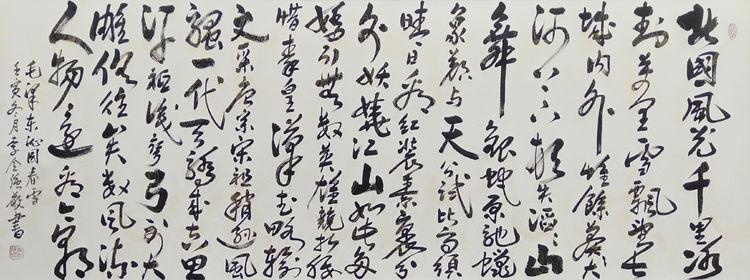 北國風光千里冰
封萬里雪飄望長
城内外惟餘莽莽大
河上下頓失滔滔山
舞銀蛇原馳蠟
象欲與天公試比高須
晴日看紅裝素裹分
外妖嬈江山如此多
嬌引無數英雄競折腰
惜秦皇漢武略輸
文采唐宗宋祖稍遜風
騷一代天驕成吉思
汗祗識彎弓射大
雕俱往矣數風流
人物還看今朝
毛澤東沁園春雪
壬寅冬月李金敬書